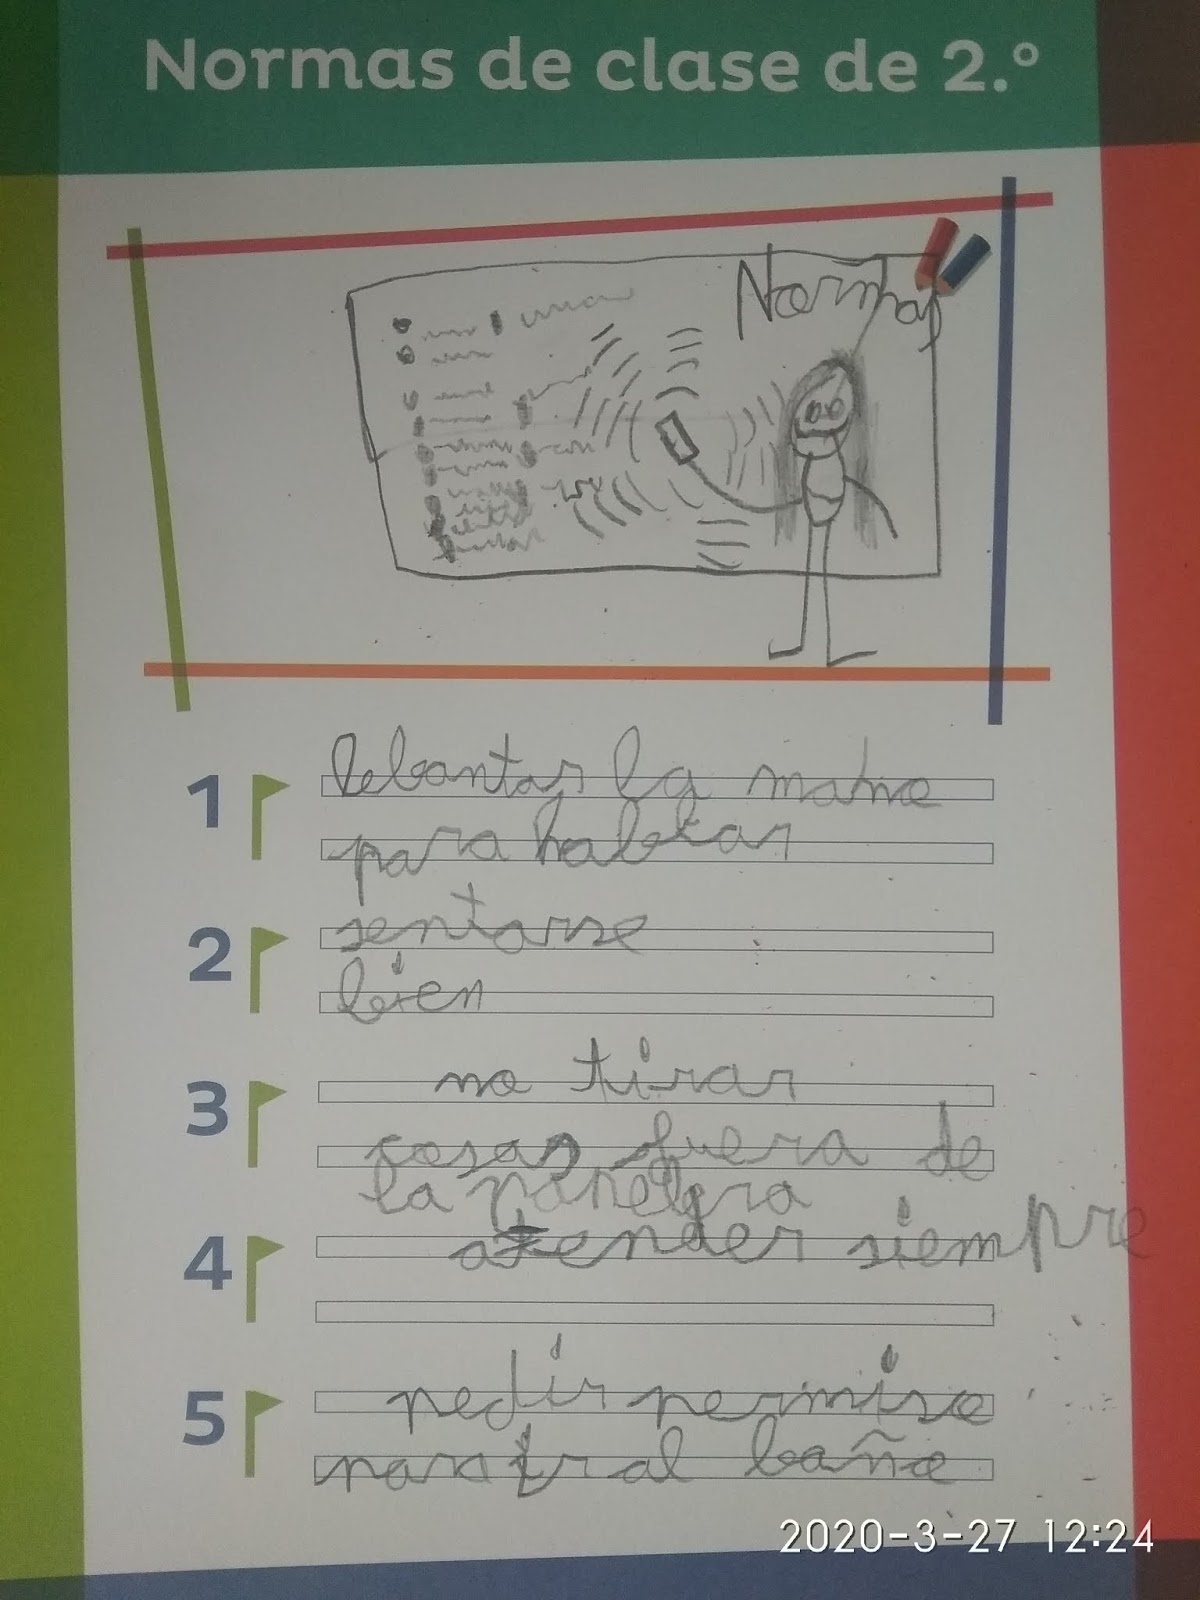 Normas de clase de 2.º
Normas
1 lebantar la mano
para hablar
2 sentarse
bien
3 no tirar
cosas fuera de
la papelera
4 atender siempre
5 pedir permiso
para ir al baño
2020-3-27 12:24